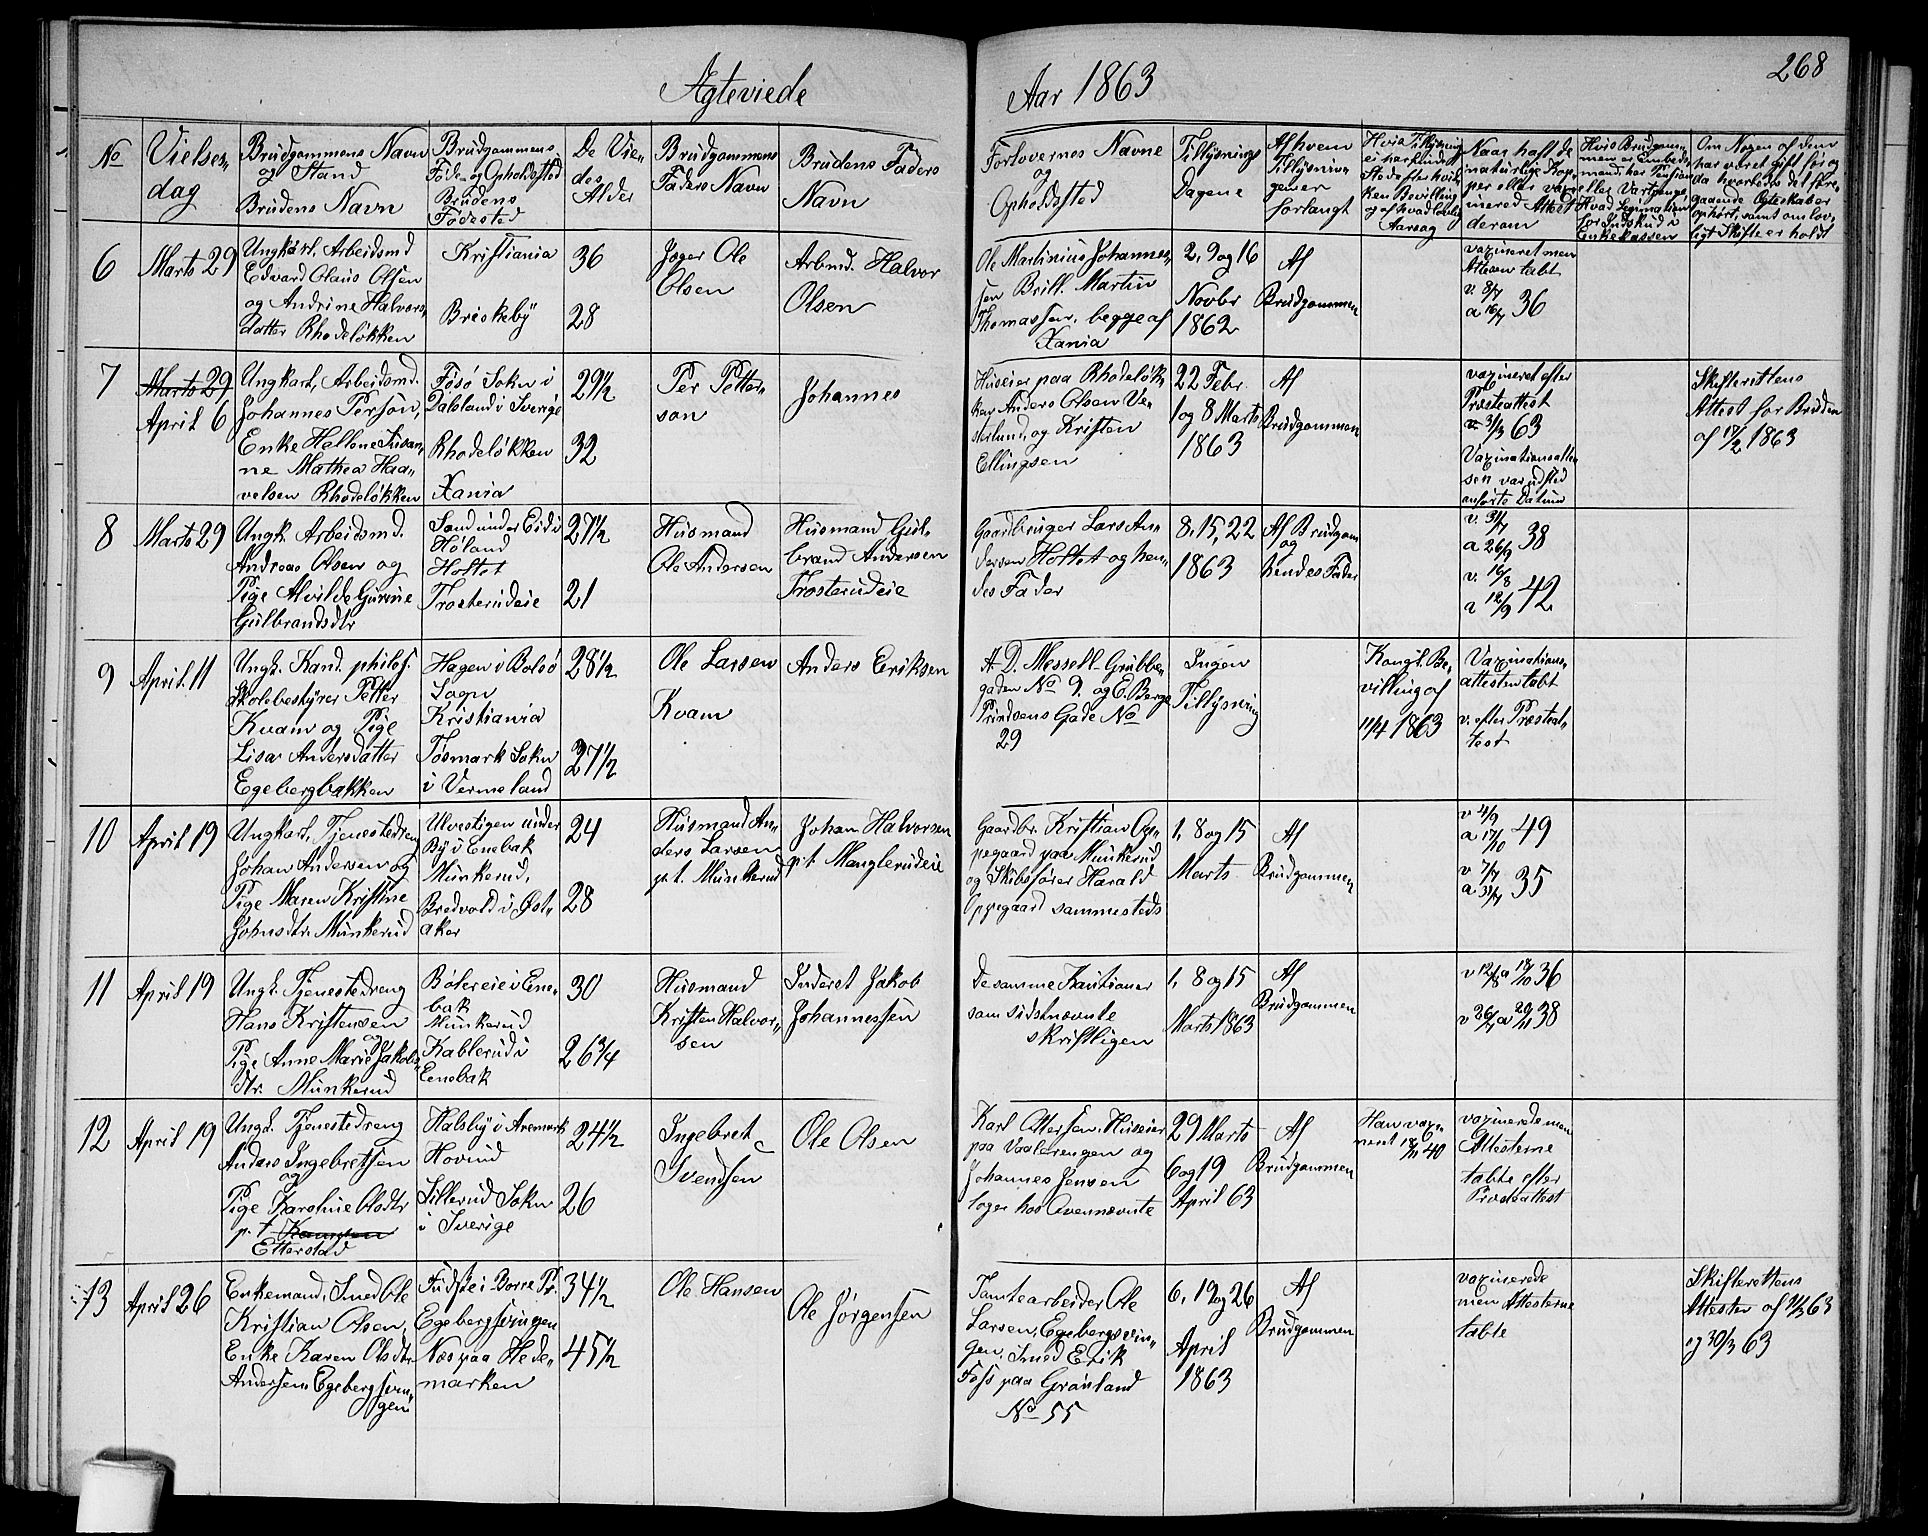 268
Agteviede
Aar 1863
No
Vielses-
dag
Brudgommens Navn
og Stand
Brudens Navn
Brudgommens
Føde- og Opholdssted
Brudens
Fødested
De Vie-
des
Alder
Brudgommens
Faders Navn
Brudens Faders
Navn
Forlovernes Navne
og
Opholdssted
Tillysnings
Dagene
Af hvem
Tillysnin-
gen er
forlangt
Hvis Tillysning
ei har fundet
Sted efter hvil-
ken Bevilling
og af hvad lovlig
Aarsag
Naar haft de
naturlige Kop-
per eller vaxi-
nered Attest
derom
Hvis Brudgom-
men er Embeds-
mand, har Pension
eller Vartpenge
Hvad Legitimation
for Indskud i
Enkekassen
Om Nogen af dem
har været gift før og
da hvorledes det fore-
gaaende Egteskaber
ophørt, samt om lov-
ligt Skifte er holdt
6
Marts 29
Ungkarl, Arbeidsmd
Edvard Olaus Olsen
og Andrine Halvors-
datter Rhodeløkken
Kristiania
Briskeby
36
28
Jæger Ole
Olsen
Arbmd. Halvor
Olsen
Ole Martinius Johannes-
sen Brill. Martin
Thomassen, begge af
Xania
2, 9 og 16
Novbr
1862
Af
Brudgommen
vaxineret men
Attesten tabt
v. 8/7
a 16/7 36
7
Marts 29
April 6
Ungkarl, Arbeidsmd.
Johannes Person,
Enke Hellene Susan-
ne Mathea Haa-
velsen Rhodeløkken
Føsø Sokn i
Dalsland i Sverige
Rhodeløkken
Xania
29½
32
Per Petter-
son
Johannes
Huseier paa Rhodeløk
ken Anders Olsen Ve-
sterlund, og Kristen
Ellingsen
22 Febr.
1 og 8 Marts
1863
Af
Brudgommen
vaxineret efter
Præsteattest
v. 31/3 63
Vaxinationsatte-
sen var udsted
anførte Datum
Skifterettens
Attest for Bruden
af 17/2 1863
8
Marts 29
Ungk. Arbeidsmd.
Andreas Olsen og
Pige Alvilde Gurine
Gulbrandsdtr
Sand under Eid i
Høland
Holtet
Trosterudeie
27½
21
Husmand
Ole Andersen
Husmand Gul-
brand Andersen
Trosterudeie
Gaardbruger Lars An-
dersen Holtet og hen-
des Fader
8, 15, 22
1863
Af Brudgom
og
hendes Fader
v. 31/7
a 26/9 38
v. 16/8
a 12/9 42
9
April 11
Ungk. Kand. philos.
Skolebestyrer Petter
Kvam og Pige
Lisa Andersdatter
Egebergbakken
Hagen i Bolsø
Sogn
Kristiania
Tøsmark Sokn
i Vermeland
28½
27½
Ole Larsen
Kvam
Anders Eriksen
A. D. Messell. Grubbe-
gaden No 9. og E. Berge
Prindsens Gade No
29
Ingen
Tillysning
Kongl. Be-
villing af
11/4 1863
Vaxinations-
attesten tabt
v. efter Præsteat-
test
10
April 19
Ungkarl, Tjenestedreng
Johan Andersen og
Pige Maren Kristine
Johnsdtr. Munkerud
Ulvestigen under
By i Enebak
Munkerud,
Bredvold i Øst-
aker
24
28
Husmand An-
ders Larsen
p.t. Munkerud
Johan Halvorsen
p.t. Manglerudeie
Gaardbr. Kristian Op-
pegaard paa Munkerud
og Skibsfører Harald
Oppegaard sammesteds
1, 8 og 15
Marts
Af
Brudgommen
v 4/9
a 17/10 49
v 7/7
a 31/7 35
11
April 19
Ungk. Tjenestedreng
Hans Kristensen
og
Pige Anne Marie Jakobs-
dtr. Munkerud
Bølereie i Ene-
bak
Munkerud
Kablerud i
Eenebak
30
26¾
Husmand
Kristen Halvor-
sen
Inderst Jakob
Johannessen
De samme Kautioner
som sidstnævnte
skriftligen
1, 8 og 15
Marts 1863
Af
Brudgommen
v 12/8 a 18/10 36
v 26/7 a 29/11 38
12
April 19
Ungk. Tjenestedreng
Anders Ingebretsen
og
Pige Karoline Olsdtr
p.t.
Etterstad
Halsby i Aremark
Hovind
Sillerud Sokn
i Sverige
24½
26
Ingebret
Svendsen
Ole Olsen
Karl Ottersen, Huseier
paa Vaalerengen og
Johannes Jensen
loger hos Ovennævnte
29 Marts
6 og 19
April 63
Af
Brudgommen
Han vaxi-
neret 18/11 40
vaxinerede men
Attesterne
tabte efter
Præsteattest
13
April 26
Enkemand, Smed Ole
Kristian Olsen,
Enke Karen Olsdtr
Andersen, Egebergsvin-
gen
Fudskei Borre Pr.
Egebergsvingen
Næs paa Hede-
marken
34½
45½
Ole Hansen
Ole Jørgensen
Tomtearbeider Ole
Larsen, Egebergsvin-
gen. Smed Erik
Foss paa Grønland
No 55
6, 19 og 26
April
1863
Af
Brudgommen
vaxinerede
men Attesterne
tabte
Skifterettens
Attester af 4/3 63
og 30/3 63